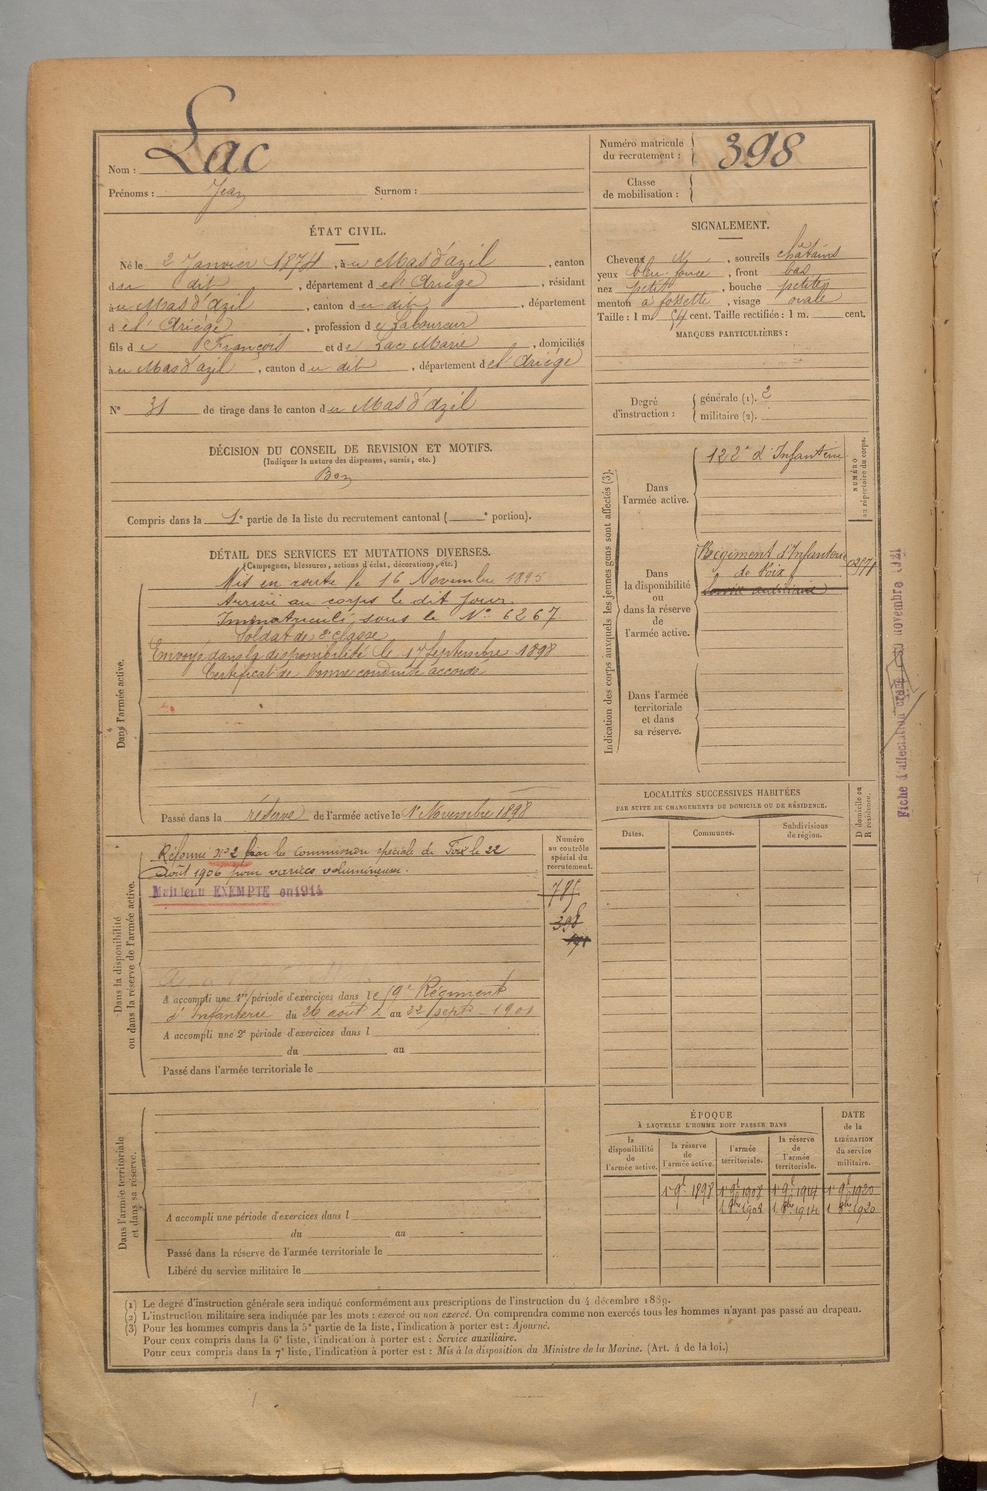 Nom : Lac
Prénoms : Jean Surnom :
Numéro matricule
du recrutement : 398
Classe
de mobilisation :
ÉTAT CIVIL.
Né le 2 Janvier 1874, à u Mas d'azil, canton
du dit, département de l'Ariège, résidant
au Mas d'Azil, canton du dit, département
d e l'Ariège, profession de Laboureur
fils de François et de Lac Marie, domiciliés
au Mas d'azil, canton du dit, département de l'Ariège
N° 31 de tirage dans le canton du Mas d'Azil
SIGNALEMENT.
Cheveux N, sourcils châtains
yeux bleu foncé, front bas
nez petit, bouche petite
menton à fossette, visage ovale
Taille : 1 m. 54 cent. Taille rectifiée : 1 m. cent.
MARQUES PARTICULIÈRES :
Degré
d'instruction :
générale (1). 2
militaire (2).
DÉCISION DU CONSEIL DE REVISION ET MOTIFS.
(Indiquer la nature des dispenses, sursis, etc.)
Bon
Compris dans la 1e partie de la liste du recrutement cantonal ( e portion).
DÉTAIL DES SERVICES ET MUTATIONS DIVERSES.
(Campagnes, blessures, actions d'éclat, décorations, etc.)
Dans l'armée active.
Mis en route le 16 Novembre 1895
Arrivé au corps le dit jour.
Immatriculé sous le N° 6267
Soldat de 2e classe
Envoyé dans la disponibilité le 17 Septembre 1898
Certificat de bonne conduite accordé
Passé dans la réserve de l'armée active le 1er Novembre 1898
Indication des corps auxquels les jeunes gens sont affectés (3).
NUMÉRO
au répertoire du corps.
Dans
l'armée active.
122e d'Infanterie
Dans
la disponibilité
ou
dans la réserve
de
l'armée active.
Régiment d'Infanterie
de Foix
Service auxiliaire
Dans l'armée
territoriale
et dans
sa réserve.
Fiche d'affectation novembre
Dans la disponibilité
ou dans la réserve de l'armée active.
Réformé N° 2 par la commission spéciale de Foix le 22
Août 1906 pour varices volumineuses.
Maintenu EXEMPTE en 1914
Numéro
au contrôle
spécial du
recrutement.
785
398
A accompli une 1re période d'exercices dans le 59e Régiment
d'Infanterie du 26 août au 22 sept. 1901
A accompli une 2e période d'exercices dans l
du au
Passé dans l'armée territoriale le
LOCALITÉS SUCCESSIVES HABITÉES
PAR SUITE DE CHANGEMENTS DE DOMICILE OU DE RÉSIDENCE.
D domicile ou
R résidence.
Dates. Communes. Subdivisions
de région.
Dans l'armée territoriale
et dans sa réserve.
A accompli une période d'exercices dans l
du au
Passé dans la réserve de l'armée territoriale le
Libéré du service militaire le
ÉPOQUE
À LAQUELLE L'HOMME DOIT PASSER DANS
la
disponibilité
de
l'armée active.
la réserve
de
l'armée active.
l'armée
territoriale.
la réserve
de
l'armée
territoriale.
DATE
de la
LIBÉRATION
du service
militaire.
1er 9bre 1898 1er 9bre 1908 1er 9bre 1914 1er 9bre 1920
1 8bre 1908 1 8bre 1914 1 8bre 1920
(1) Le degré d'instruction générale sera indiqué conformément aux prescriptions de l'instruction du 4 décembre 1889.
(2) L'instruction militaire sera indiquée par les mots : exercé ou non exercé. On comprendra comme non exercés tous les hommes n'ayant pas passé au drapeau.
(3) Pour les hommes compris dans la 5e partie de la liste, l'indication à porter est : Ajourné.
Pour ceux compris dans la 6e liste, l'indication à porter est : Service auxiliaire.
Pour ceux compris dans la 7e liste, l'indication à porter est : Mis à la disposition du Ministre de la Marine. (Art. 4 de la loi.)